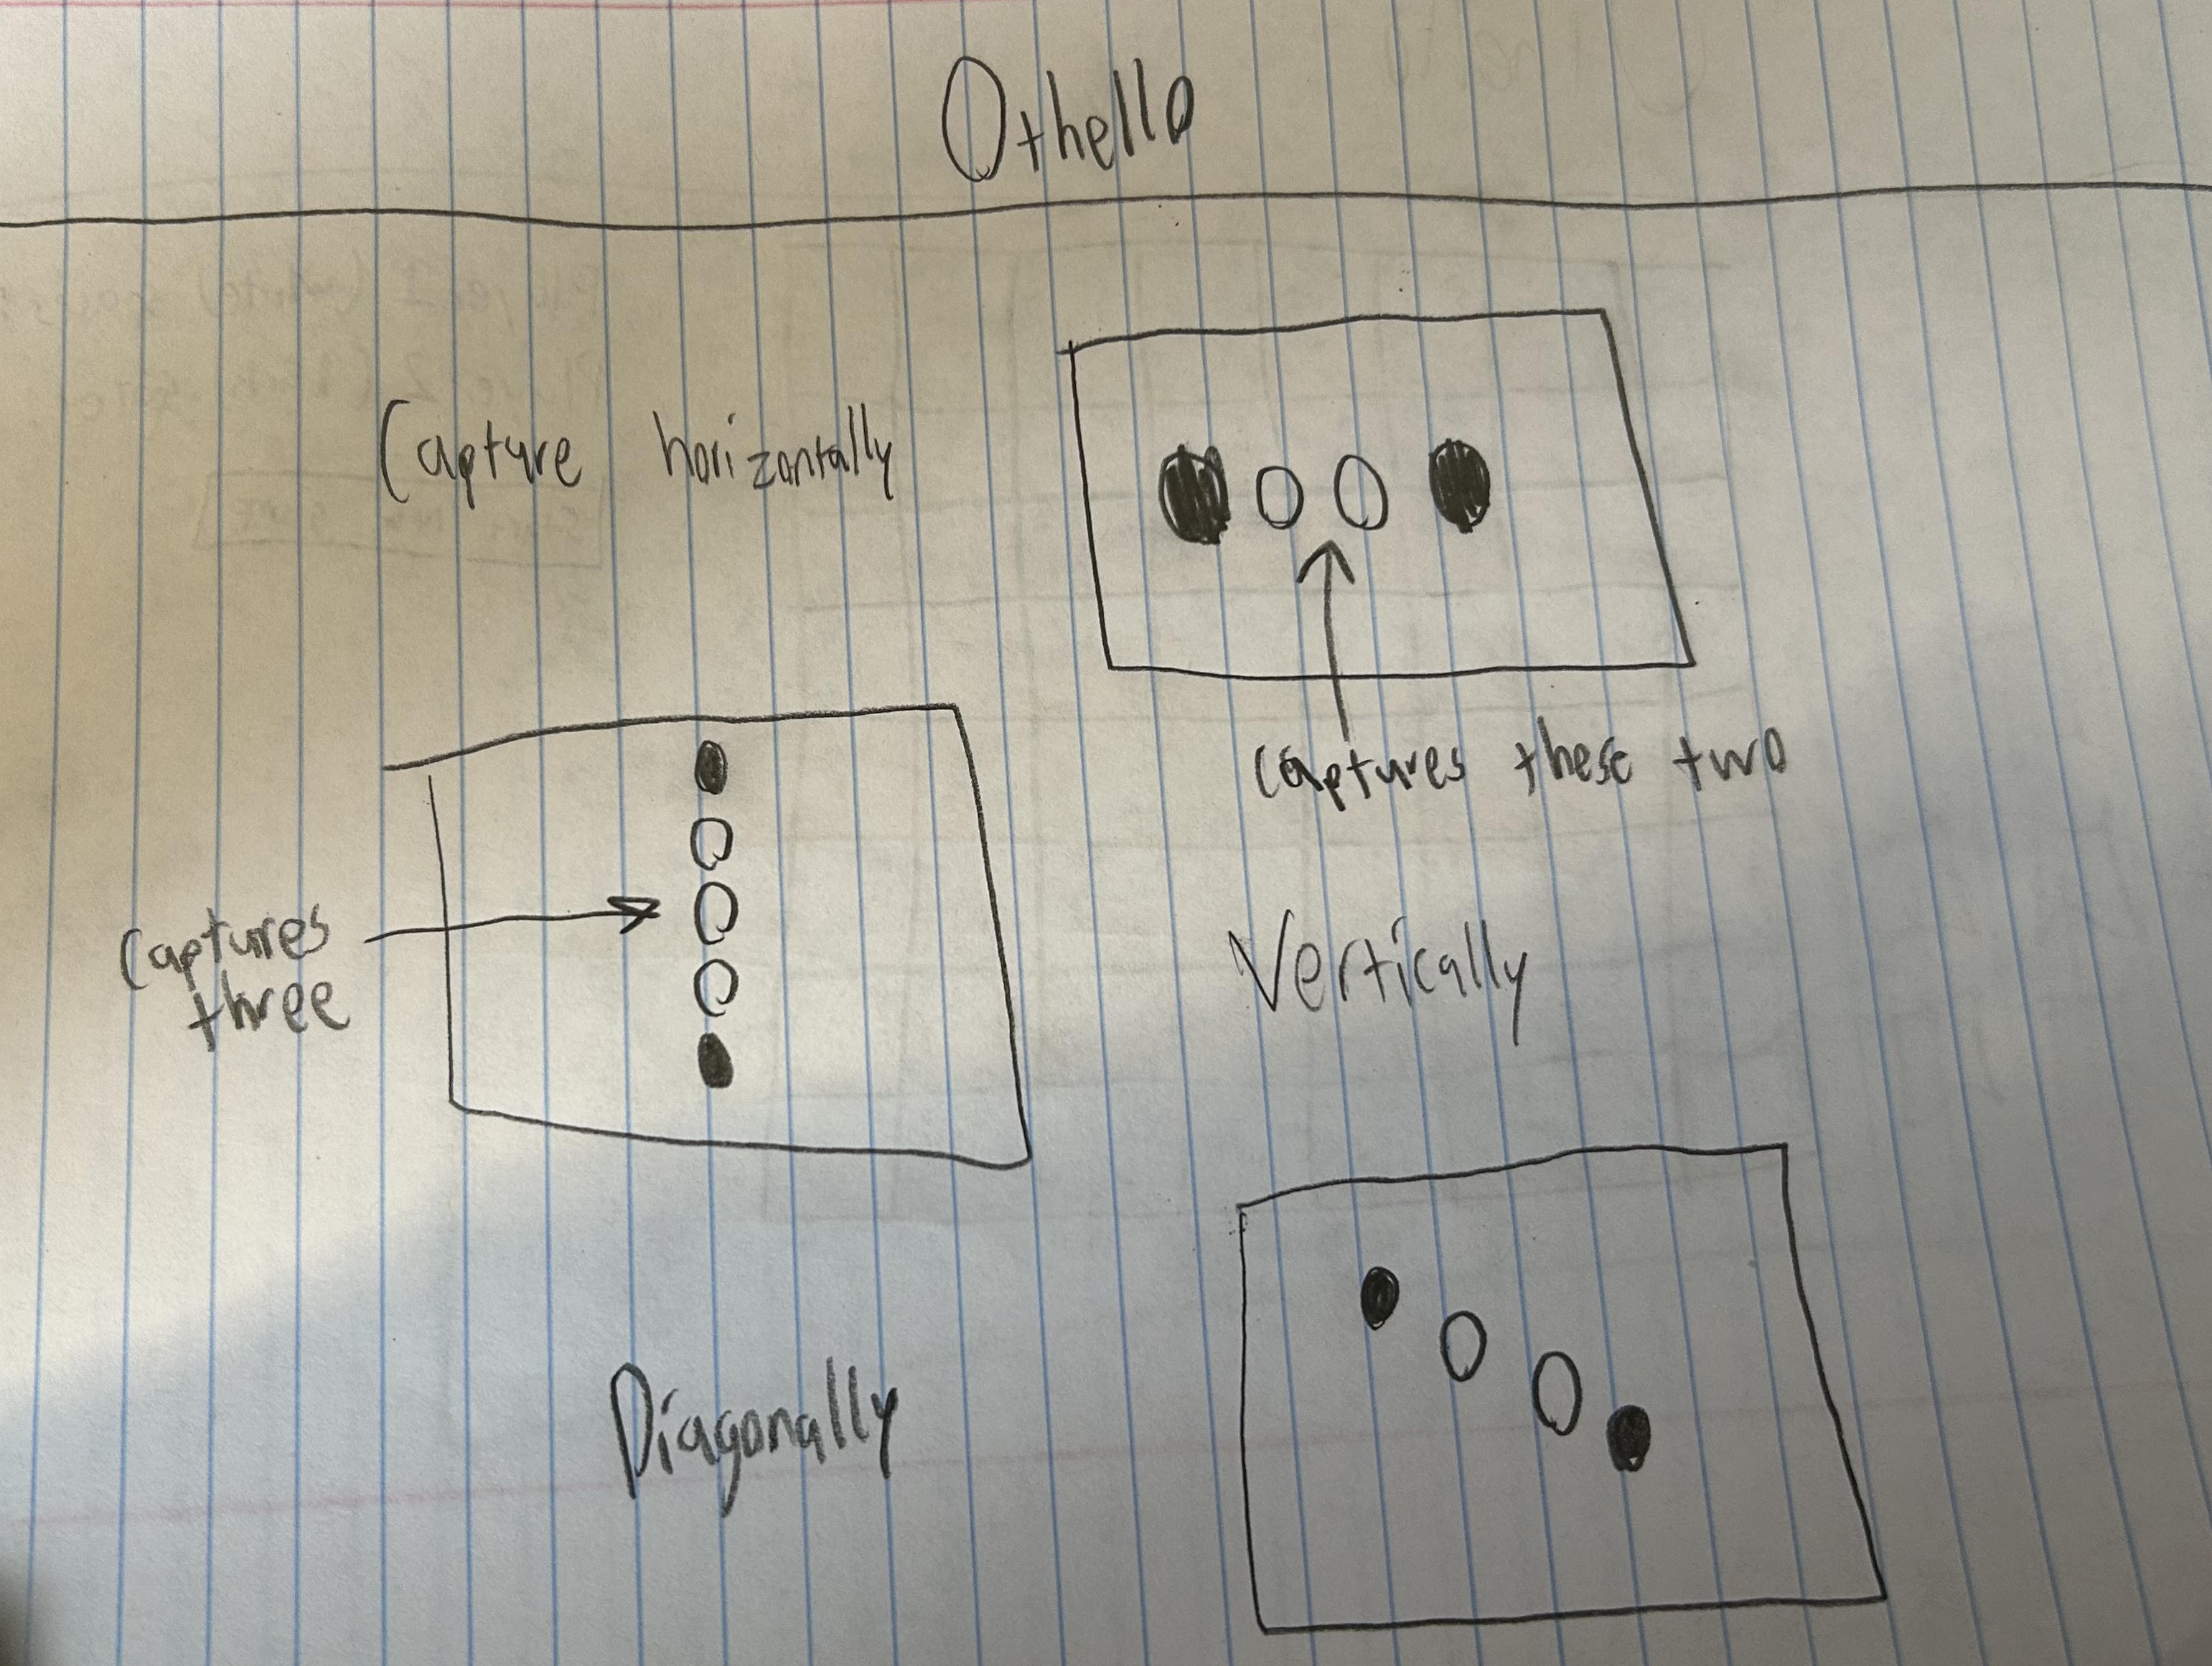 Othello
Capture horizontally
captures these two
Captures
three
Vertically
Diagonally